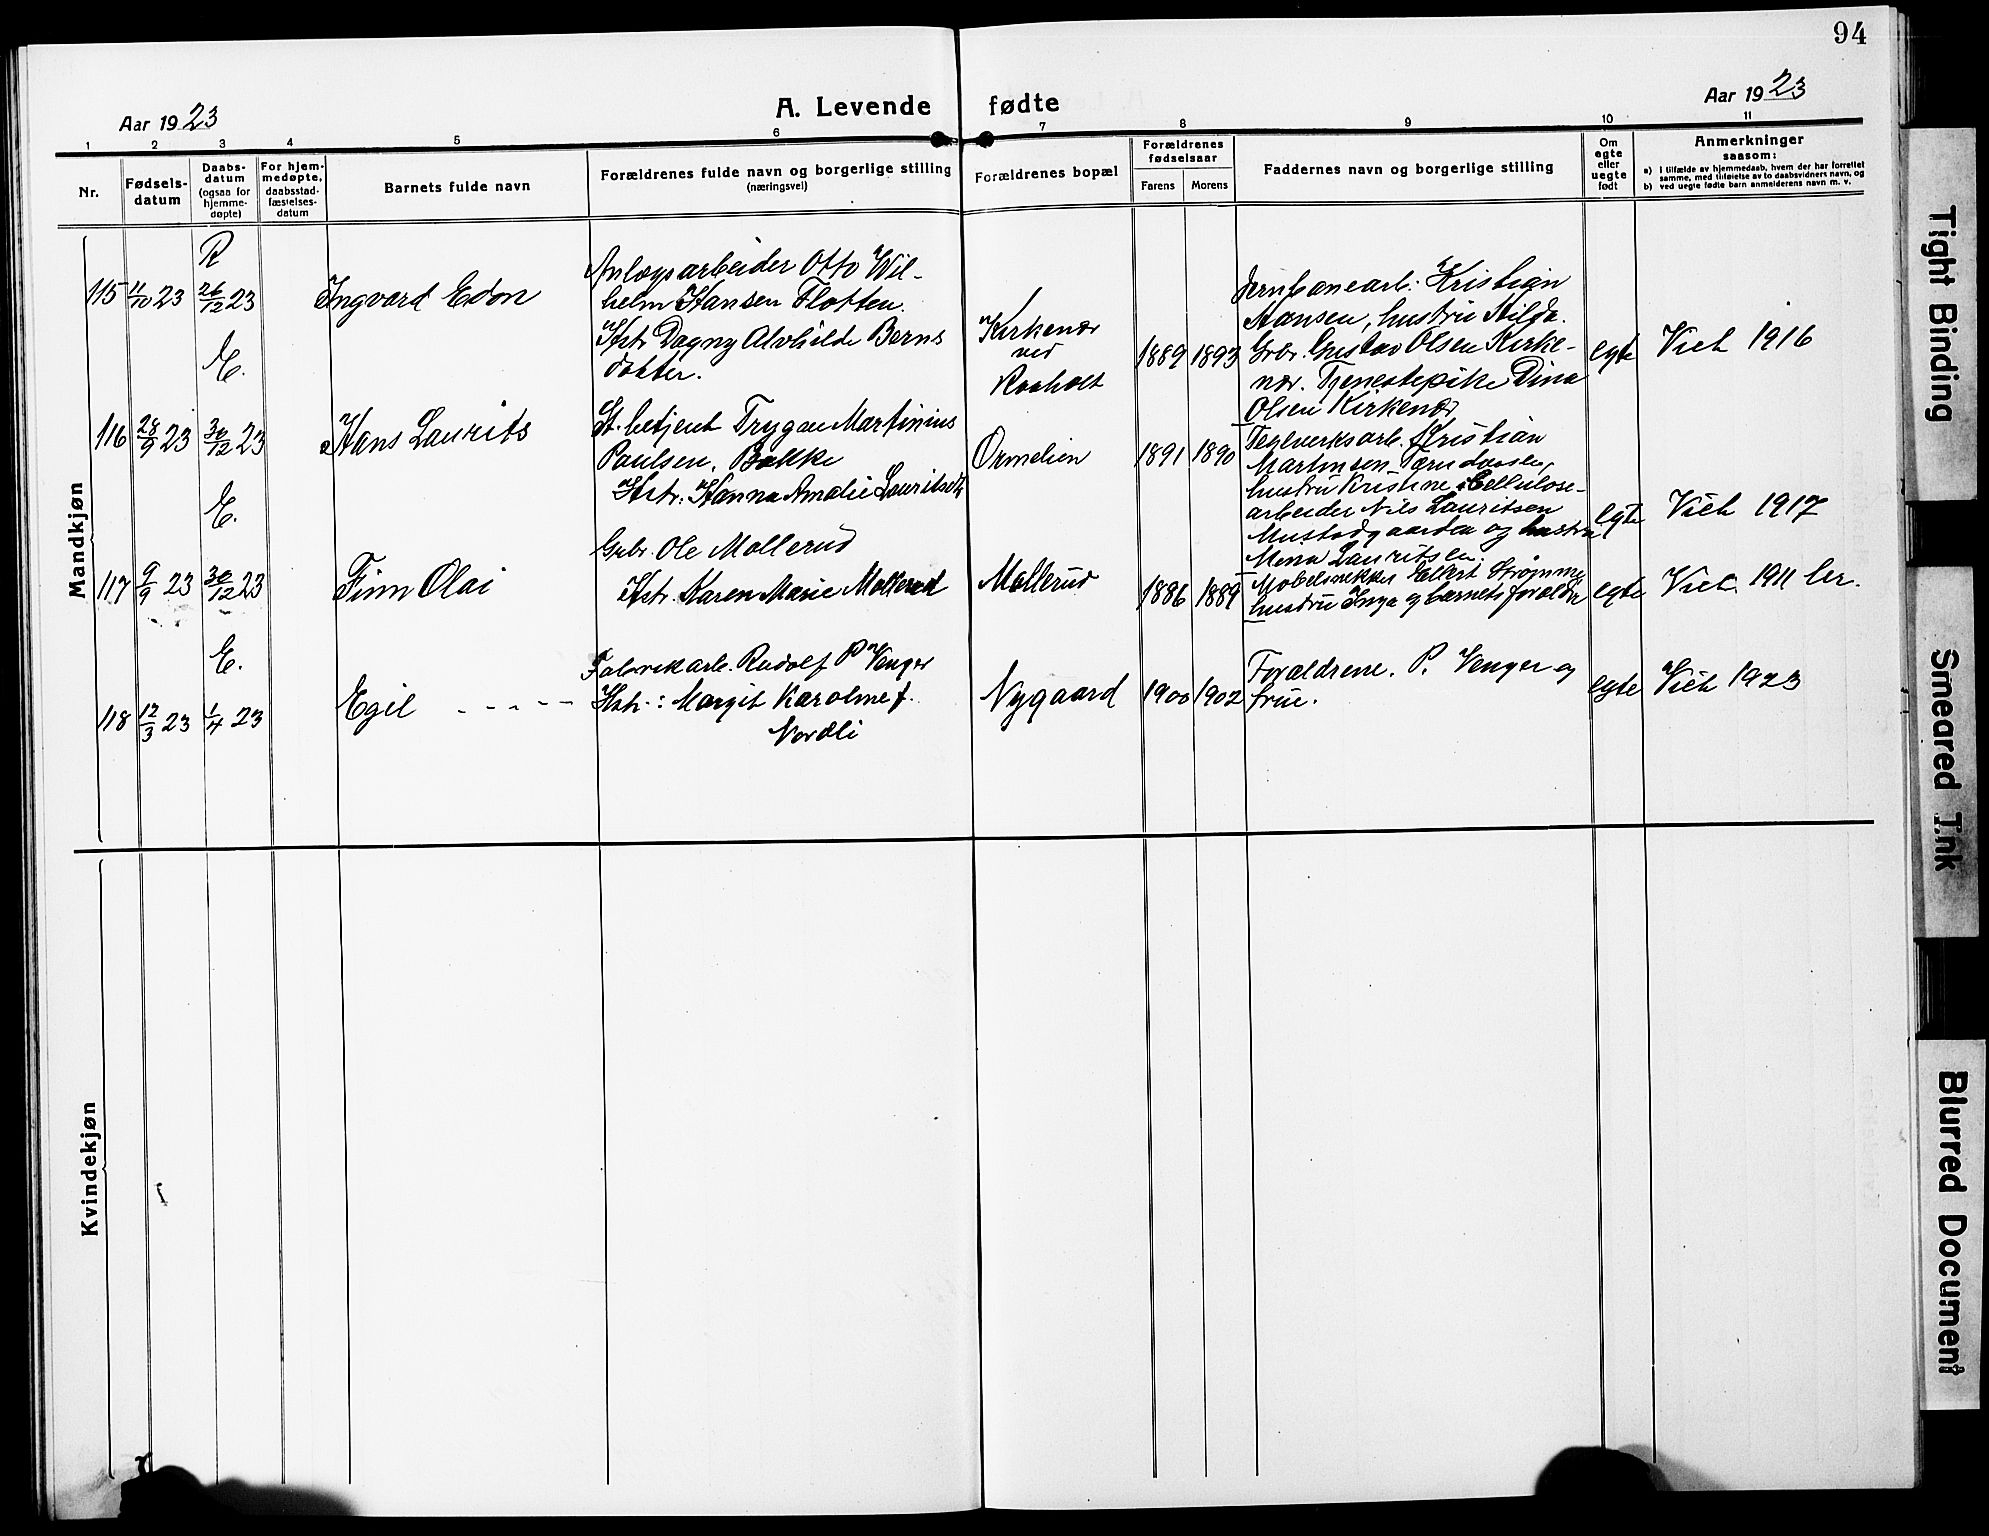 94
Aar 1923
A. Levende fødte
Aar 1923
1 2 3 4 5 6 7 8 9 10 11
Nr.
Fødsels-
datum
Daabs-
datum
(ogsaa for
hjemme-
døpte)
For hjem-
medøpte,
daabsstad-
fæstelses-
datum
Barnets fulde navn
Forældrenes fulde navn og borgerlige stilling
(næringsvei)
Forældrenes bopæl
Forældrenes
fødselsaar
Farens
Morens
Faddernes navn og borgerlige stilling
Om
egte
eller
uegte
født
Anmerkninger
saasom:
a) I tilfælde av hjemmedaab, hvem der har forrettet
samme, med tilføielse av to daabsvidners navn, og
b) ved uegte fødte barn anmelderens navn m. v.
Mandkjøn
R
115 11/10 23 26/12 23
Ingvard Edon
Anlægsarbeider Otto Wil-
helm Hansen Flotten.
Hstr Dagny Alvhilde Berns
datter.
Kirkenær
ved
Raaholt
1889 1893
Jernbanearb. Kristian
Hansen, hustru Hilda.
Gbr. Gustav Olsen Kirke-
nær. Tjenestepike Dina
Olsen Kirkenær
egte
Vict 1916
E.
116 28/9 23 30/12 23
Hans Laurits
St. betjent Trygve Martinius
Paulsen. Bakke
Hstr: Hanna Amalie Lauritsdtr
Ormelien
1891 1890
Teglverksarb. Kristian
Martinsen
hustru Kristine. Cellulose-
arbeider Nils Lauritsen
Mustadgaarden og hustru
Mena Lauritsen.
egte
Vict 1917
E.
117 9/9 23 30/12 23
Finn Olai
Gbr. Ole Mollerud
Hstr. Karen Marie Mollerud
Mollerud
1886 1889
Møbelsnekker Ellert Strømme
hustru Inga og barnets forældre
egte
Vict. 1911
E.
118 12/3 23 1/4 23
Egil - - - - -
Fabrikarb. Rudolf P Venger
Hstr.: Margit Karoline f.
Nordli
Nygaard
1900 1902
Forældrene. P. Venger og
frue.
egte
Vict 1923
Kvindekjøn
Tight Binding
Smeared Ink
Blurred Document